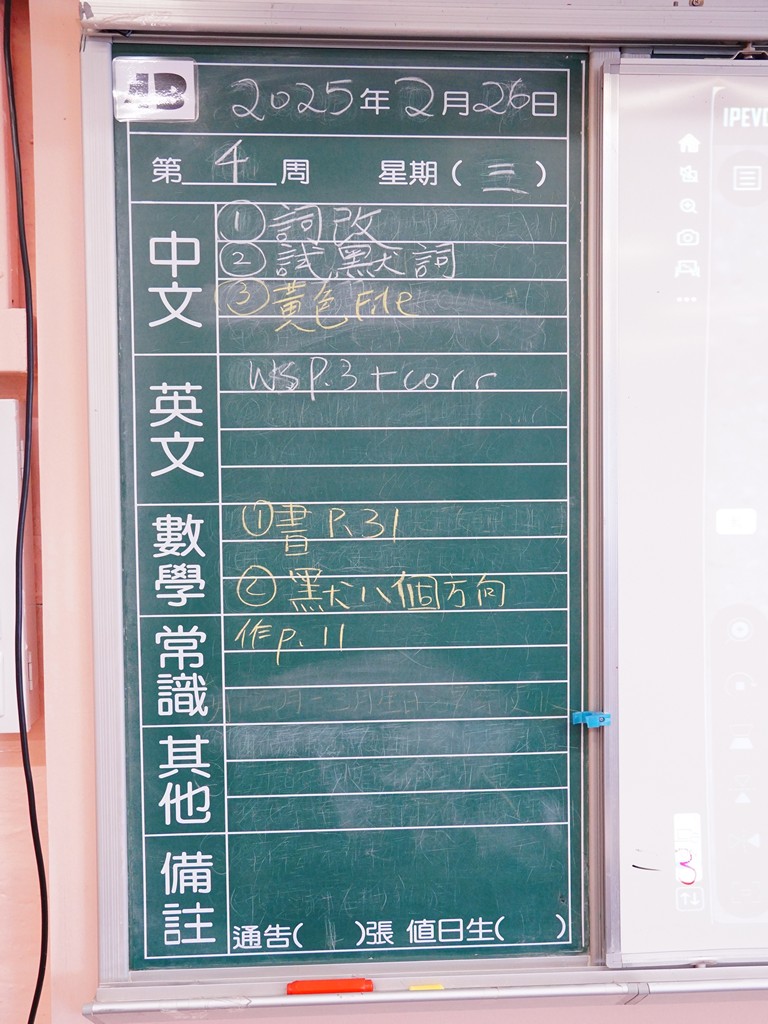 1D
2025年2月26日
第 4 周 星期( 三 )
中文
① 詞改
② 試默詞
③ 黃色File
英文
WS P.3 + corr
數學
① 書 P.31
② 默八個方向
常識
作 p.11
其他
備註
通告( )張 值日生( )
IPEVO
3